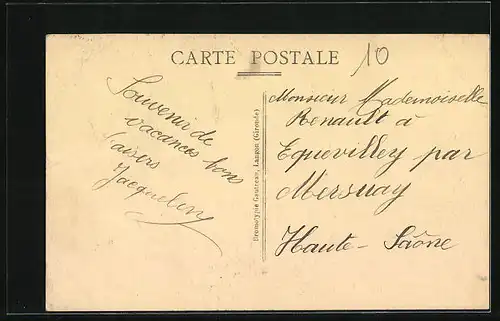 CARTE POSTALE
10
Souvenir de
vacances bons
baisers
Bromotypie Gautreau, Langon (Gironde)
Monsieur Mademoiselle
Renault à
Equevilley par
Mersuay
Haute-Saône